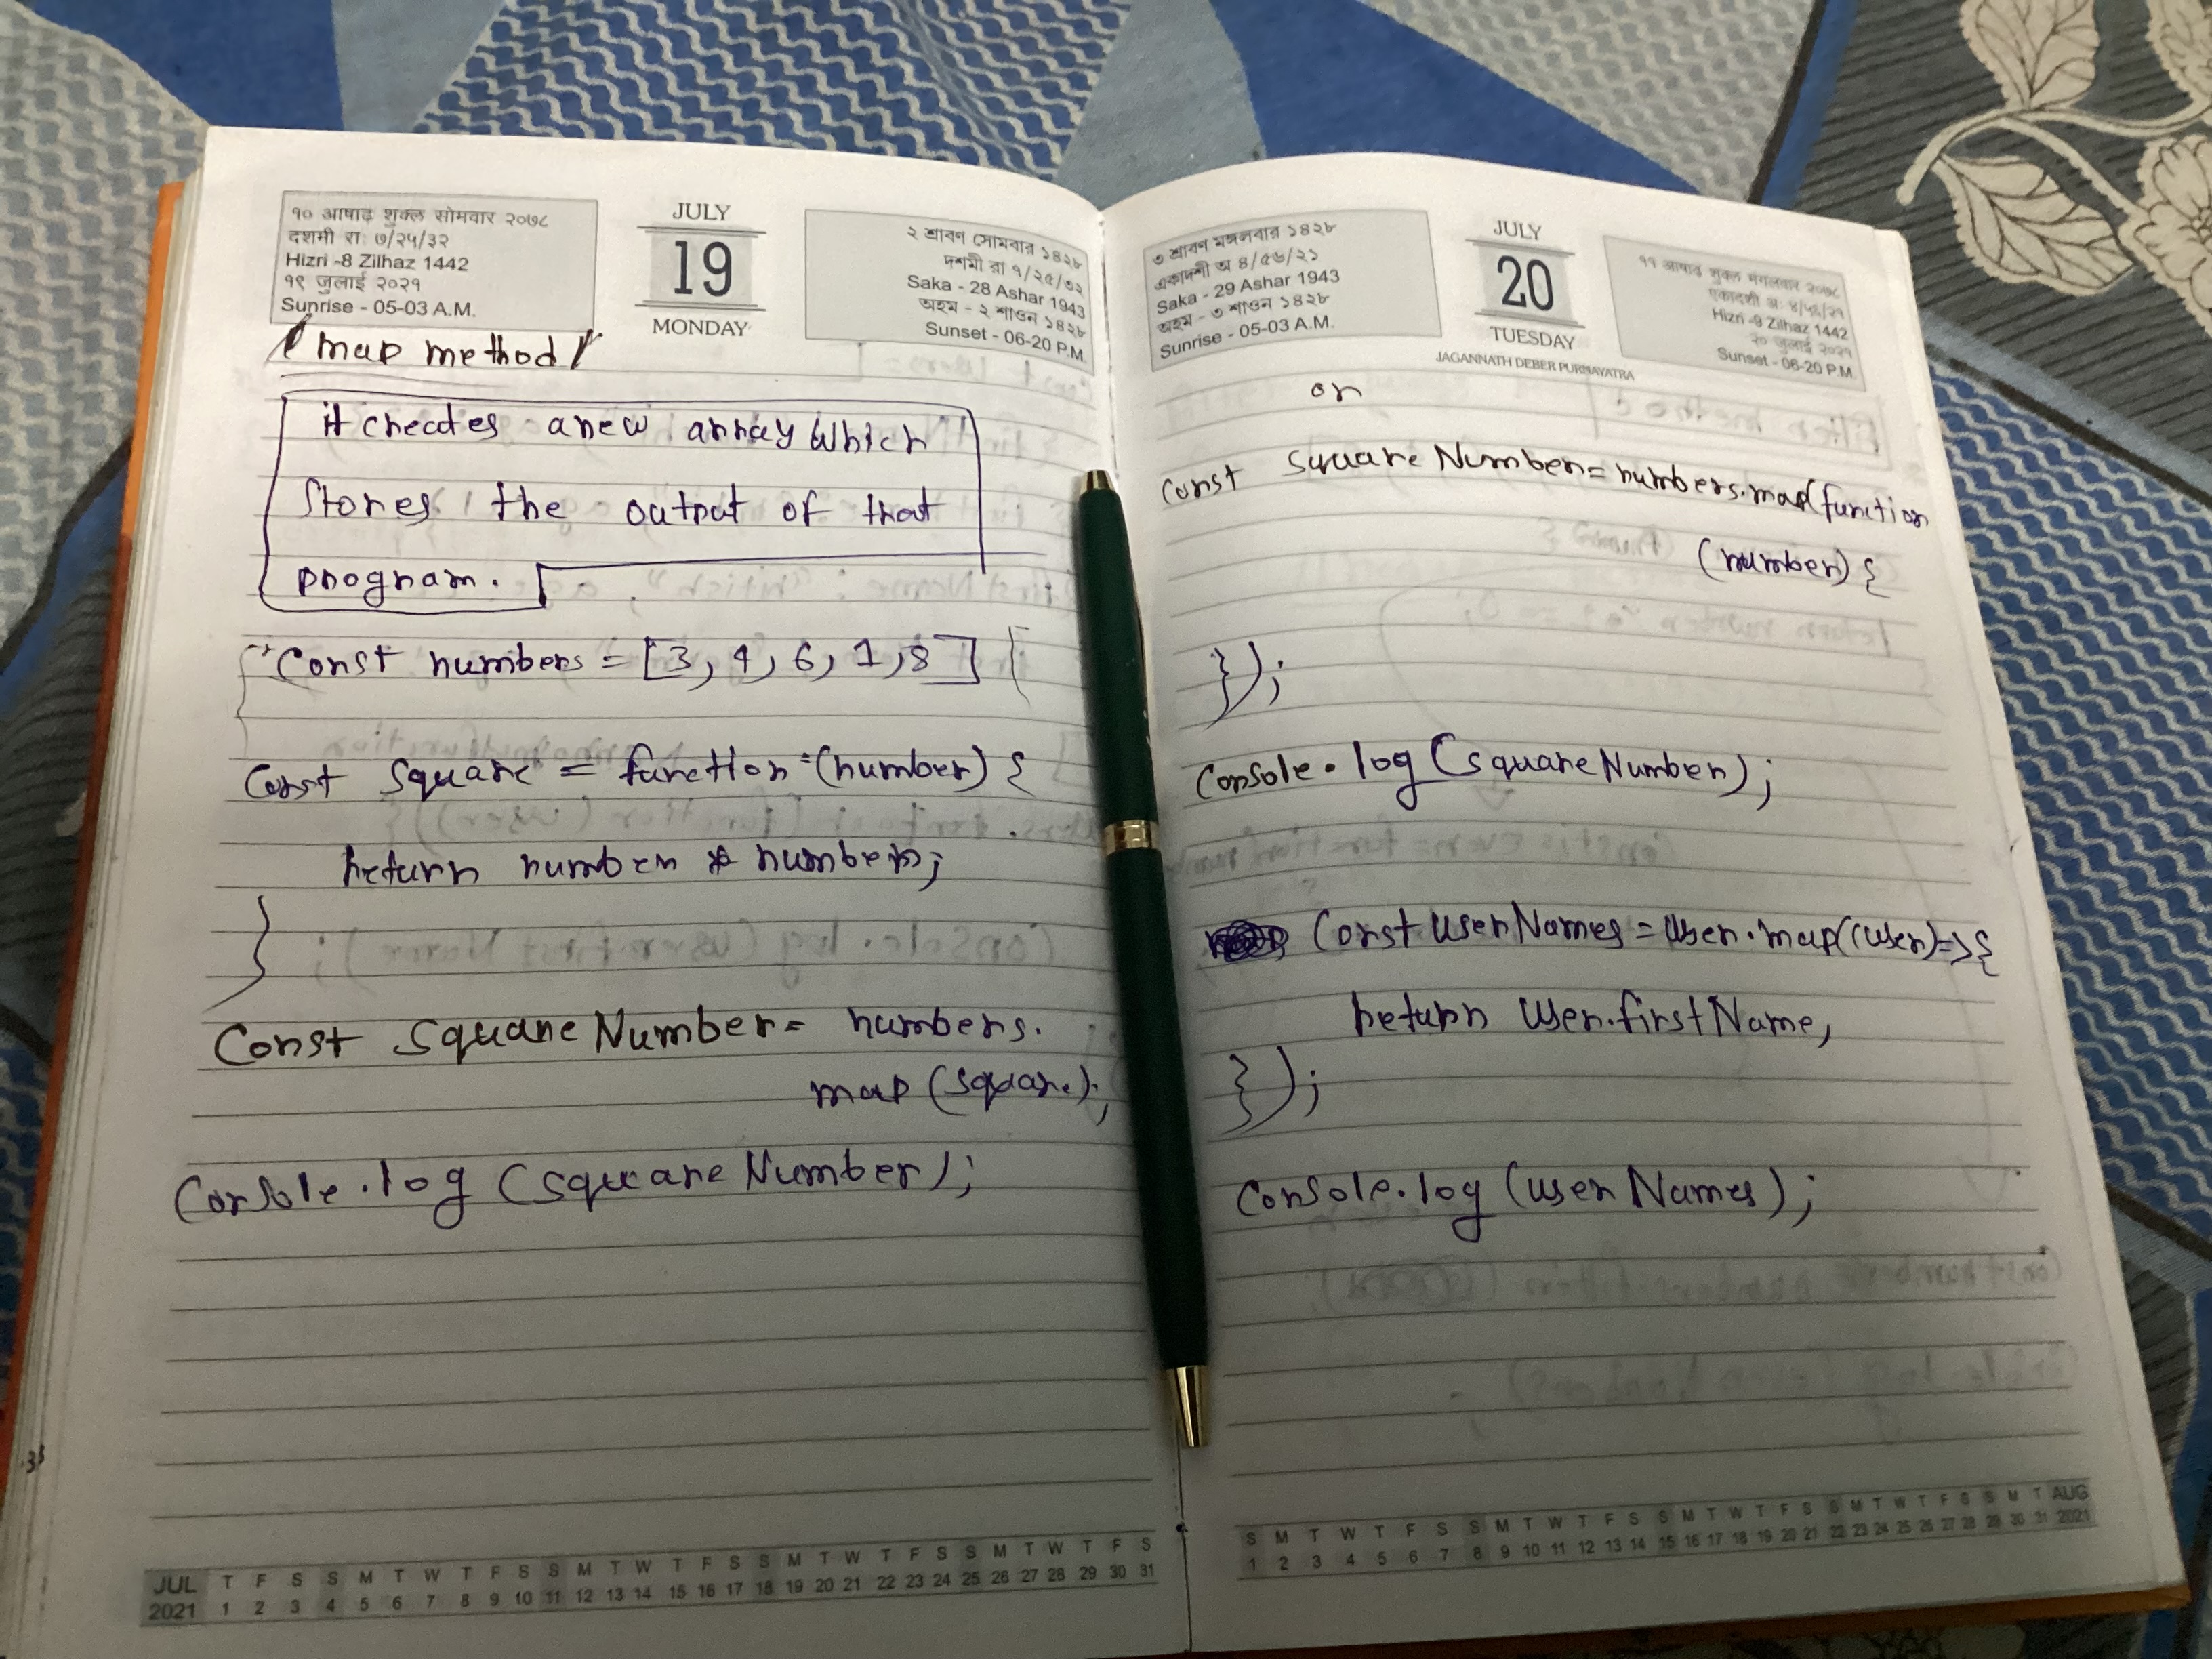 १० आषाढ़ शुक्ल सोमवार २०७८
दशमी रा: ७/२५/३२
Hizri -8 Zilhaz 1442
१९ जुलाई २०२१
Sunrise - 05-03 A.M.
JULY
19
MONDAY
২ শ্রাবণ সোমবার ১৪২৮
দশমী রা ৭/২৫/৩২
Saka - 28 Ashar 1943
অহম - ২ শাওন ১৪২৮
Sunset - 06-20 P.M.
map method
it creates a new array which
stores the output of that
program.
Const numbers = [3, 4, 6, 1, 8]
Const square = function (number) {
return number * number;
}
Const squareNumber = numbers.
map (square);
Console.log (squareNumber);
JUL T F S S M T W T F S S M T W T F S S M T W T F S S M T W T F S
2021 1 2 3 4 5 6 7 8 9 10 11 12 13 14 15 16 17 18 19 20 21 22 23 24 25 26 27 28 29 30 31
৩ শ্রাবণ মঙ্গলবার ১৪২৮
একাদশী অ ৪/৫৬/২১
Saka - 29 Ashar 1943
অহম - ৩ শাওন ১৪২৮
Sunrise - 05-03 A.M.
JULY
20
TUESDAY
JAGANNATH DEBER PURNAYATRA
११ आषाढ़ शुक्ल मंगलवार २०७८
एकादशी अ: ४/५६/२१
Hizri -9 Zilhaz 1442
२० जुलाई २०२१
Sunset - 06-20 P.M.
or
Const squareNumber = numbers.map(function
(number) {
});
Console.log (squareNumber);
Const userNames = user.map((user)=>{
return user.firstName,
});
Console.log (userNames);
S M T W T F S S M T W T F S S M T W T F S S M T W T F S S M T AUG
1 2 3 4 5 6 7 8 9 10 11 12 13 14 15 16 17 18 19 20 21 22 23 24 25 26 27 28 29 30 31 2021